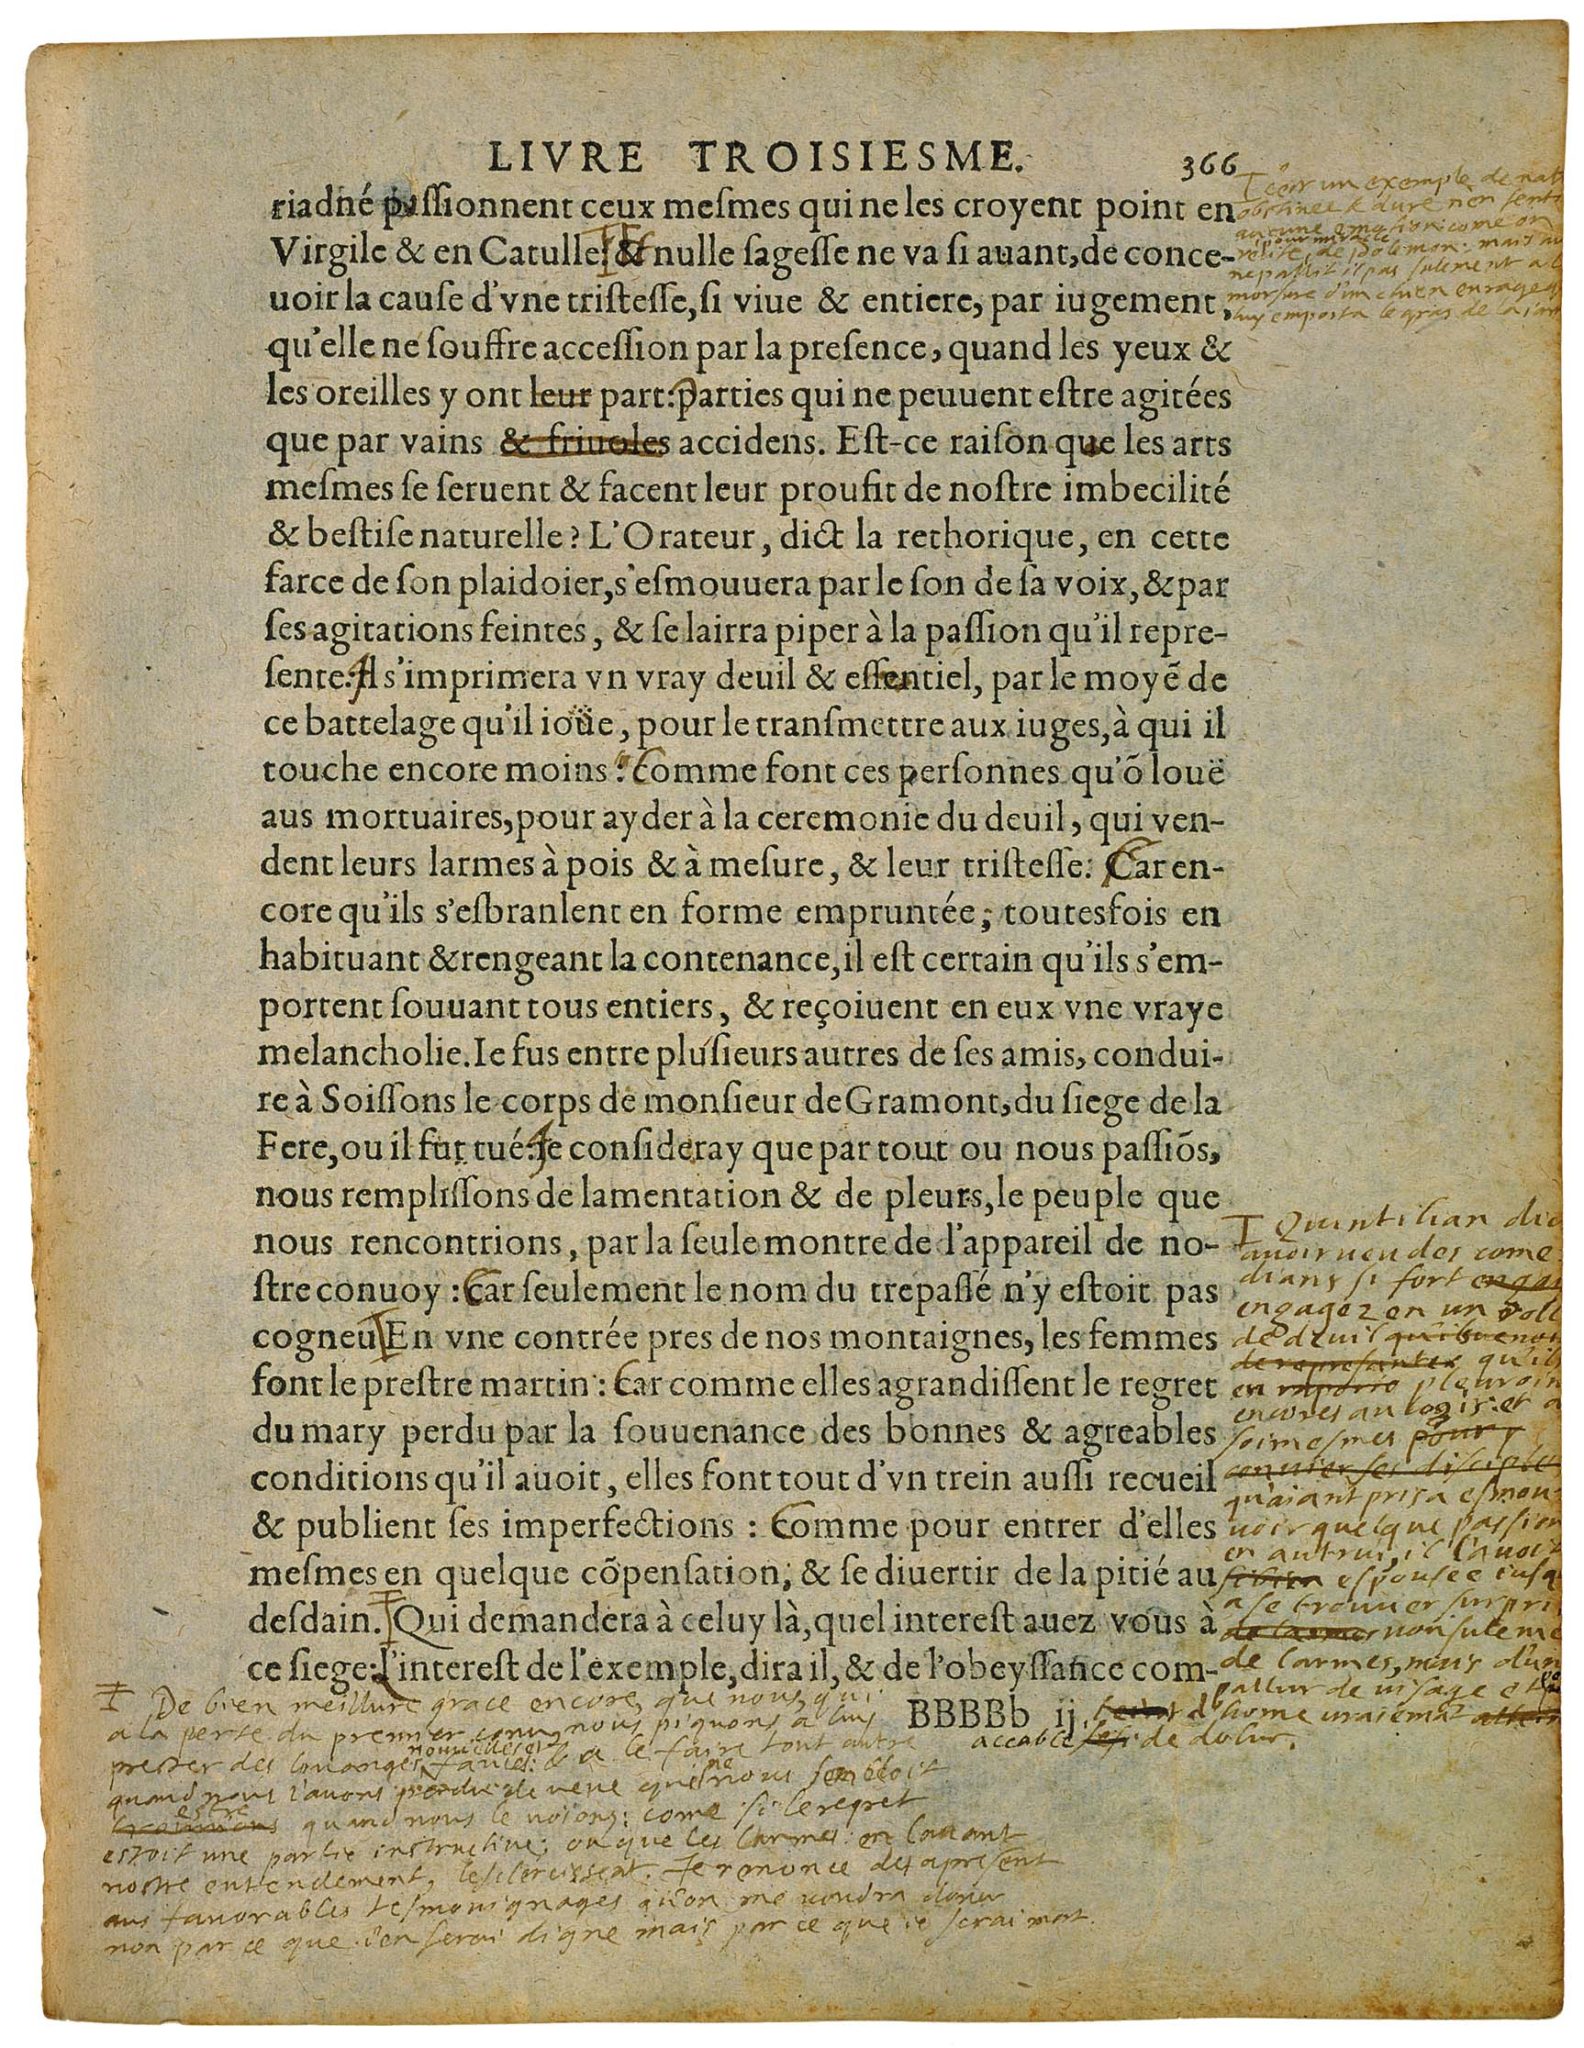 LIVRE TROISIESME. 366
riadné passionnent ceux mesmes qui ne les croyent point en
Virgile & en Catulle: & nulle sagesse ne va si auant, de conce-
uoir la cause d'vne tristesse, si viue & entiere, par iugement,
qu'elle ne souffre accession par la presence, quand les yeux &
les oreilles y ont leur part: parties qui ne peuuent estre agitées
que par vains & friuoles accidens. Est-ce raison que les arts
mesmes se seruent & facent leur proufit de nostre imbecilité
& bestise naturelle? L'Orateur, dict la rethorique, en cette
farce de son plaidoier, s'esmouuera par le son de sa voix, & par
ses agitations feintes, & se lairra piper à la passion qu'il repre-
sente: Il s'imprimera vn vray deuil & essentiel, par le moyẽ de
ce battelage qu'il ioüe, pour le transmettre aux iuges, à qui il
touche encore moins: Comme font ces personnes qu'õ louë
aus mortuaires, pour ayder à la ceremonie du deuil, qui ven-
dent leurs larmes à pois & à mesure, & leur tristesse: Car en-
core qu'ils s'esbranlent en forme empruntée, toutesfois en
habituant & rengeant la contenance, il est certain qu'ils s'em-
portent souuant tous entiers, & reçoiuent en eux vne vraye
melancholie. Ie fus entre plusieurs autres de ses amis, condui-
re à Soissons le corps de monsieur de Gramont, du siege de la
Fere, ou il fut tué: Ie consideray que par tout ou nous passiõs,
nous remplissons de lamentation & de pleurs, le peuple que
nous rencontrions, par la seule montre de l'appareil de no-
stre conuoy: Car seulement le nom du trepassé n'y estoit pas
cogneu En vne contrée pres de nos montaignes, les femmes
font le prestre martin: Car comme elles agrandissent le regret
du mary perdu par la souuenance des bonnes & agreables
conditions qu'il auoit, elles font tout d'vn trein aussi recueil
& publient ses imperfections: Comme pour entrer d'elles
mesmes en quelque cõpensation, & se diuertir de la pitié au
desdain. Qui demandera à celuy là, quel interest auez vous à
ce siege: l'interest de l'exemple, dira il, & de l'obeyssance com-
BBBBb ij
un exemple de nat
obstinee & dure n'en senti
aucune emotion: come on
recite, pour miracle, de polemon: mais au
ne pallit il pas sulement a l
morsure d'un chien enrage
luy emporta le gras de la ia
Quintilian dic
auoir ueu des come
dians si fort enga
engages en un rolle
de deuil
qu'ils
en pleuroin
encores au logis: et a
soimesmes pour
conuier ses disciples
qu'aiant pris a esmou
uoir quelque passion
en autrui, il l'auoit
espousee iusq
a se trouuer surpri
non suleme
de larmes, mais d'un
pallur de uisage et
d'home uraiemat
accable de dolur.
De bien meillure grace encore que nous, qui
a la perte du premier conu nous piquons a luy
prester des louanges nouuelles et fauces: & a le faire tout autre
quand nous l'auons perdu de ueue qu'il ne nous sembloit
estre quand nous le uoions: come si le regret
estoit une partie instructiue: ou que les larmes en lauant
nostre entendement, l'esclercissent. Je renonce des a present
aus fauorables tesmouignages qu'on me uoudra doner
non par ce que i'en serai digne mais par ce que ie serai mort.